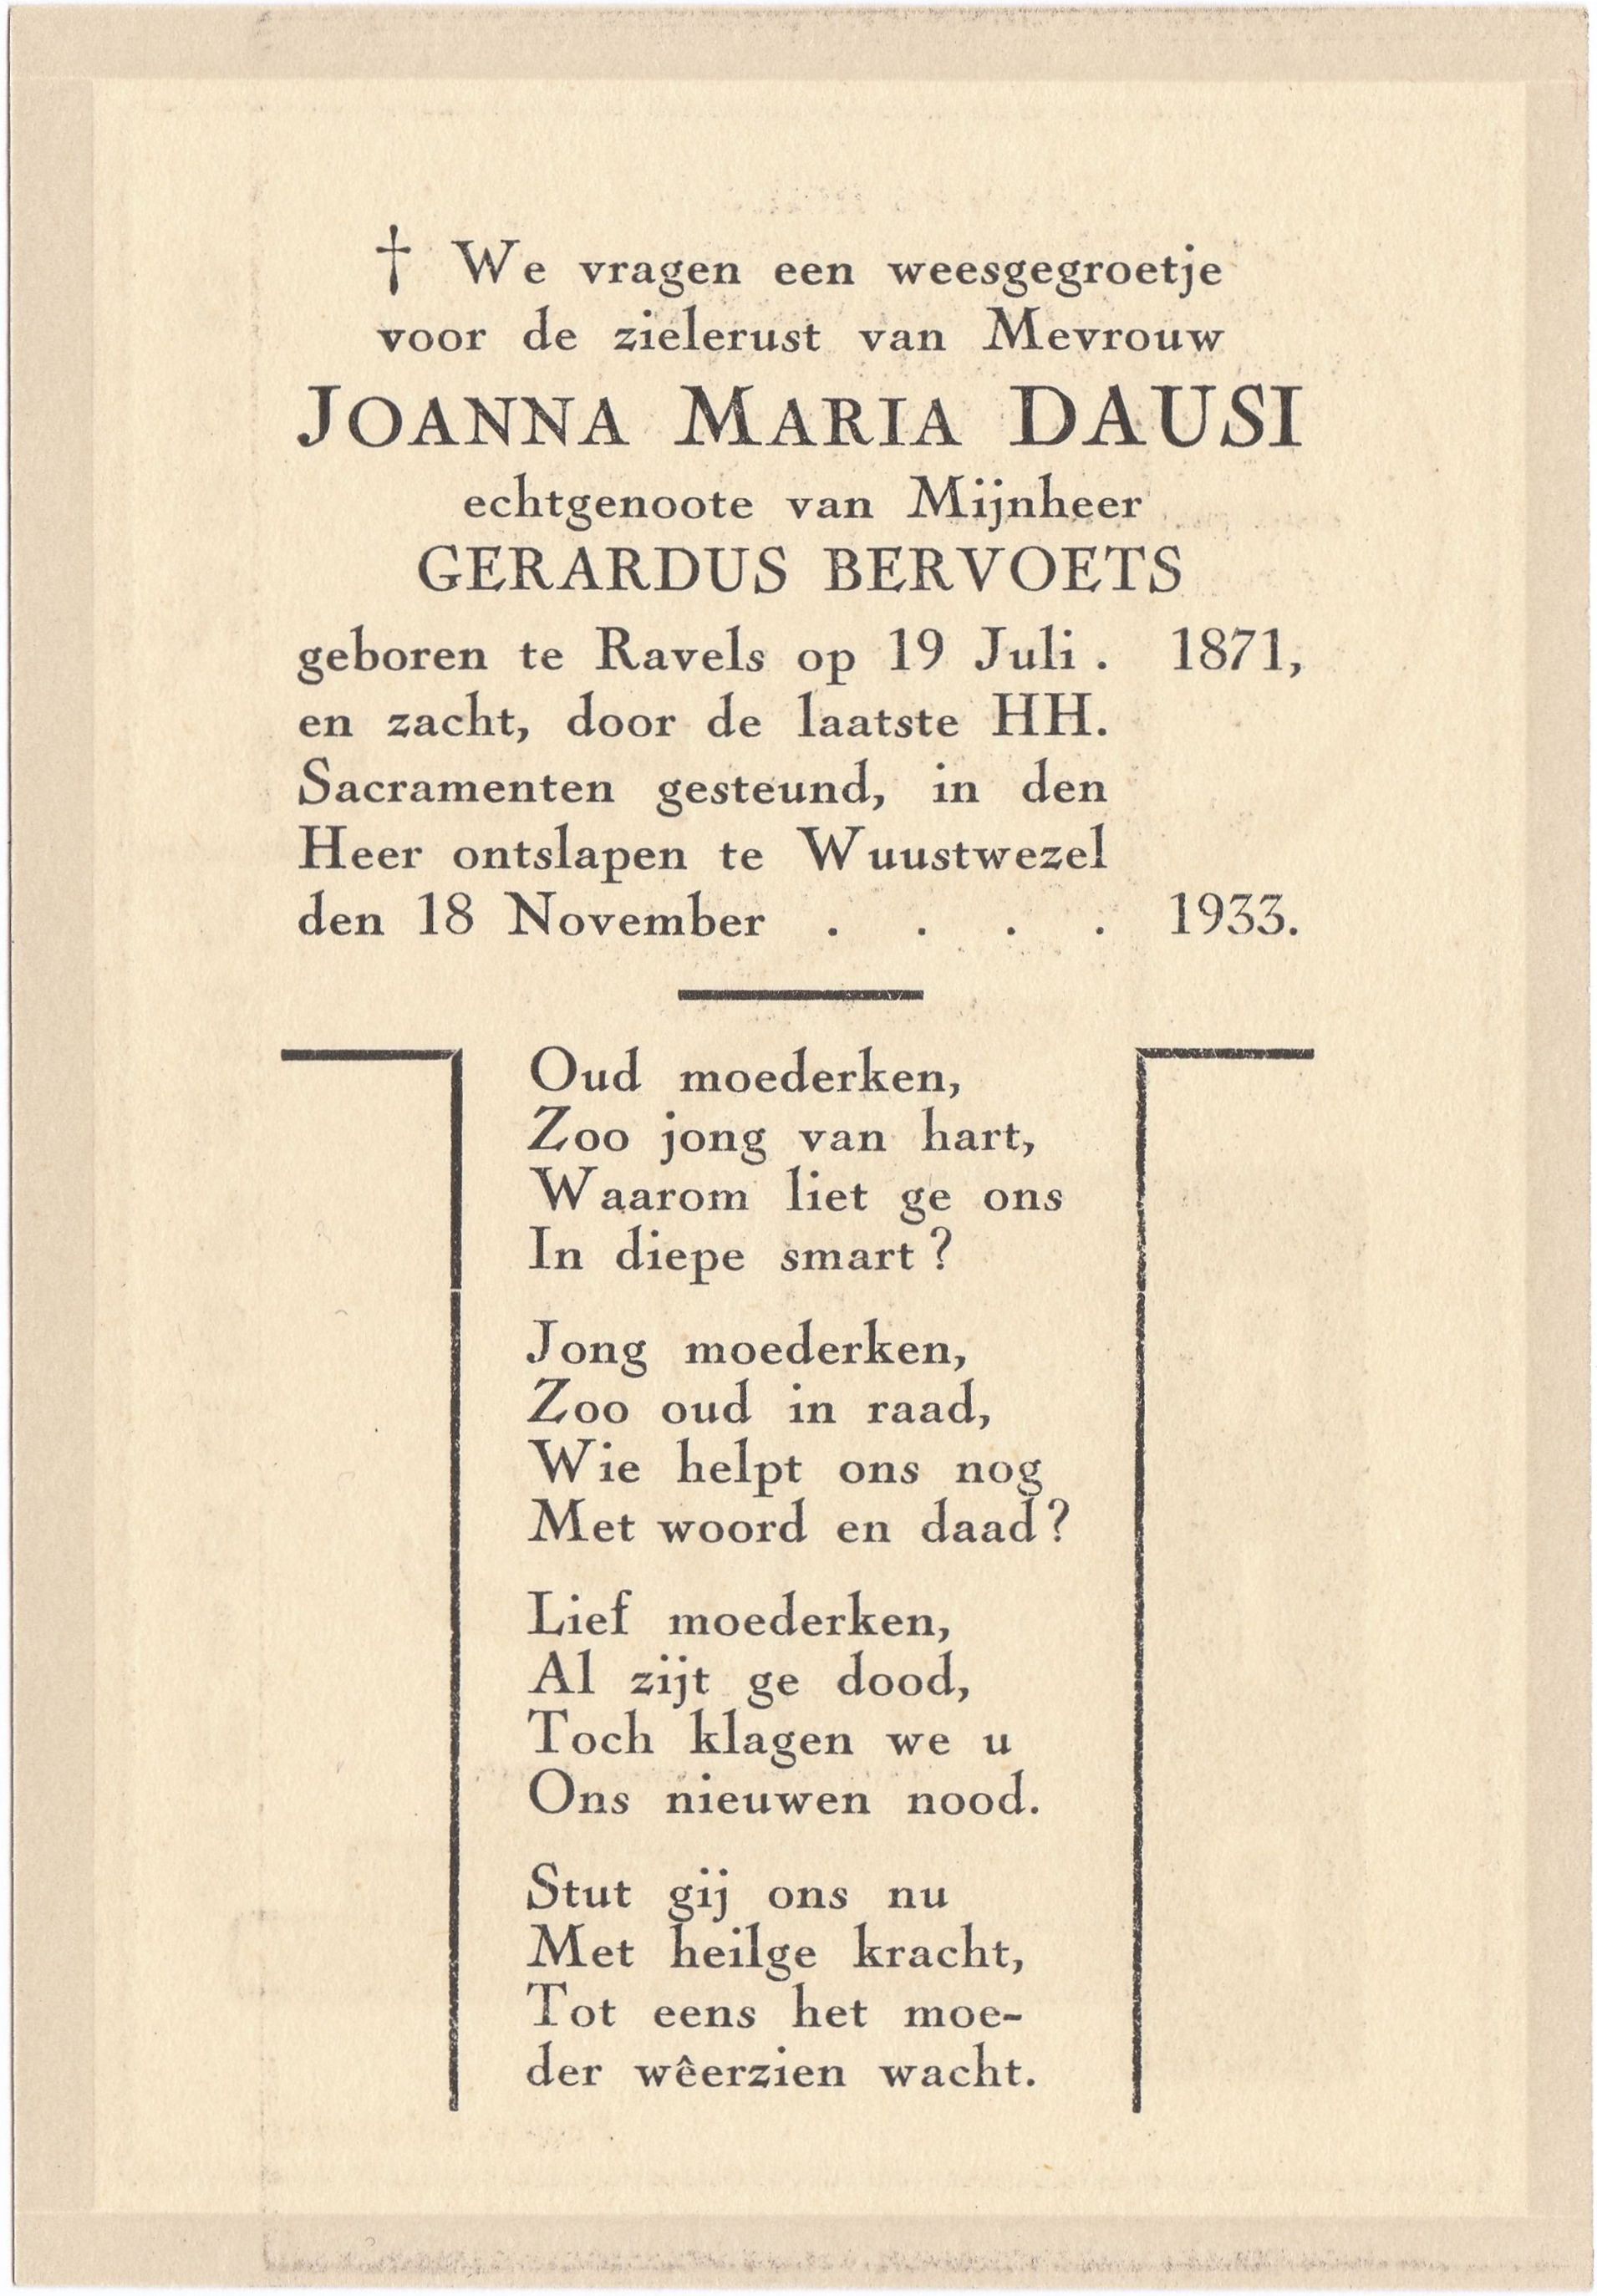 † We vragen een weesgegroetje
voor de zielerust van Mevrouw
JOANNA MARIA DAUSI
echtgenoote van Mijnheer
GERARDUS BERVOETS
geboren te Ravels op 19 Juli . 1871,
en zacht, door de laatste HH.
Sacramenten gesteund, in den
Heer ontslapen te Wuustwezel
den 18 November . . . . 1933.
Oud moederken,
Zoo jong van hart,
Waarom liet ge ons
In diepe smart ?
Jong moederken,
Zoo oud in raad,
Wie helpt ons nog
Met woord en daad ?
Lief moederken,
Al zijt ge dood,
Toch klagen we u
Ons nieuwen nood.
Stut gij ons nu
Met heilge kracht,
Tot eens het moe-
der wêerzien wacht.